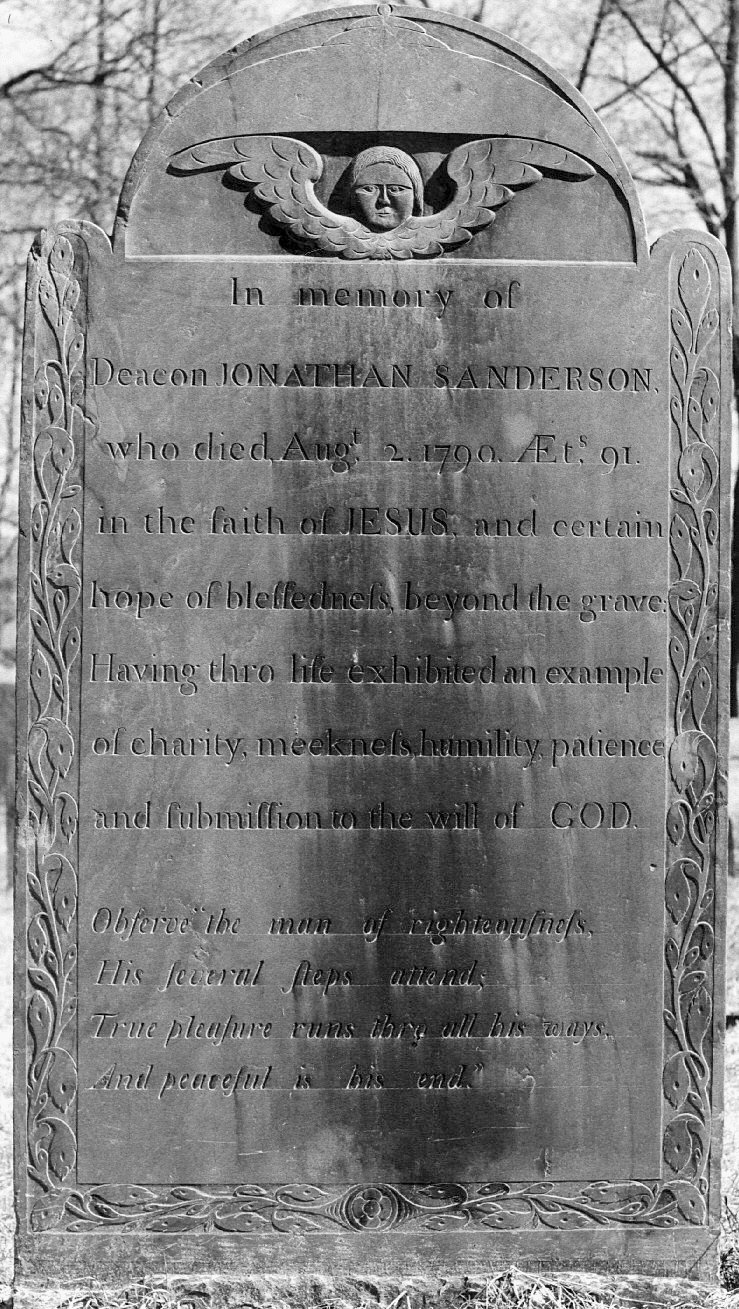 In memory of
Deacon JONATHAN SANDERSON,
who died, Augᵗ. 2. 1790. Ætˢ. 91.
in the faith of JESUS, and certain
hope of bleſſedneſs, beyond the grave:
Having thro life exhibited an example
of charity, meekneſs, humility, patience
and ſubmiſſion to the will of GOD.
Obſerve "the man of righteouſneſs,
His ſeveral ſteps attend;
True pleaſure runs thro all his ways,
And peaceful is his end."